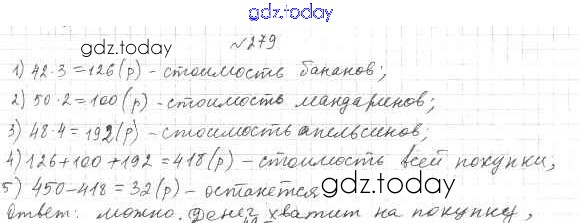 gdz.today
№279
gdz.today
1) 42·3=126(р) - стоимость бананов;
2) 50·2=100(р) - стоимость мандаринов;
3) 48·4=192(р) - стоимость апельсинов;
4) 126+100+192=418(р) - стоимость всей покупки;
5) 450-418=32(р) - останется
gdz.today
Ответ: можно. Денег хватит на покупку,